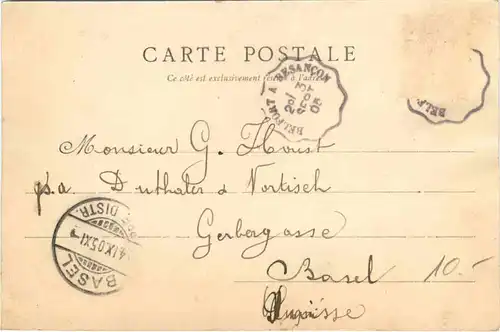 CARTE POSTALE
Ce côté est exclusivement réservé à l'adresse
BELFORT A BESANÇON
05
BELF
Monsieur G. Houst
p.a. Duthaler & Vortisch
Gerbergasse
Basel 10.-
Suisse
BASEL
4.IX.05.XI
DISTR.